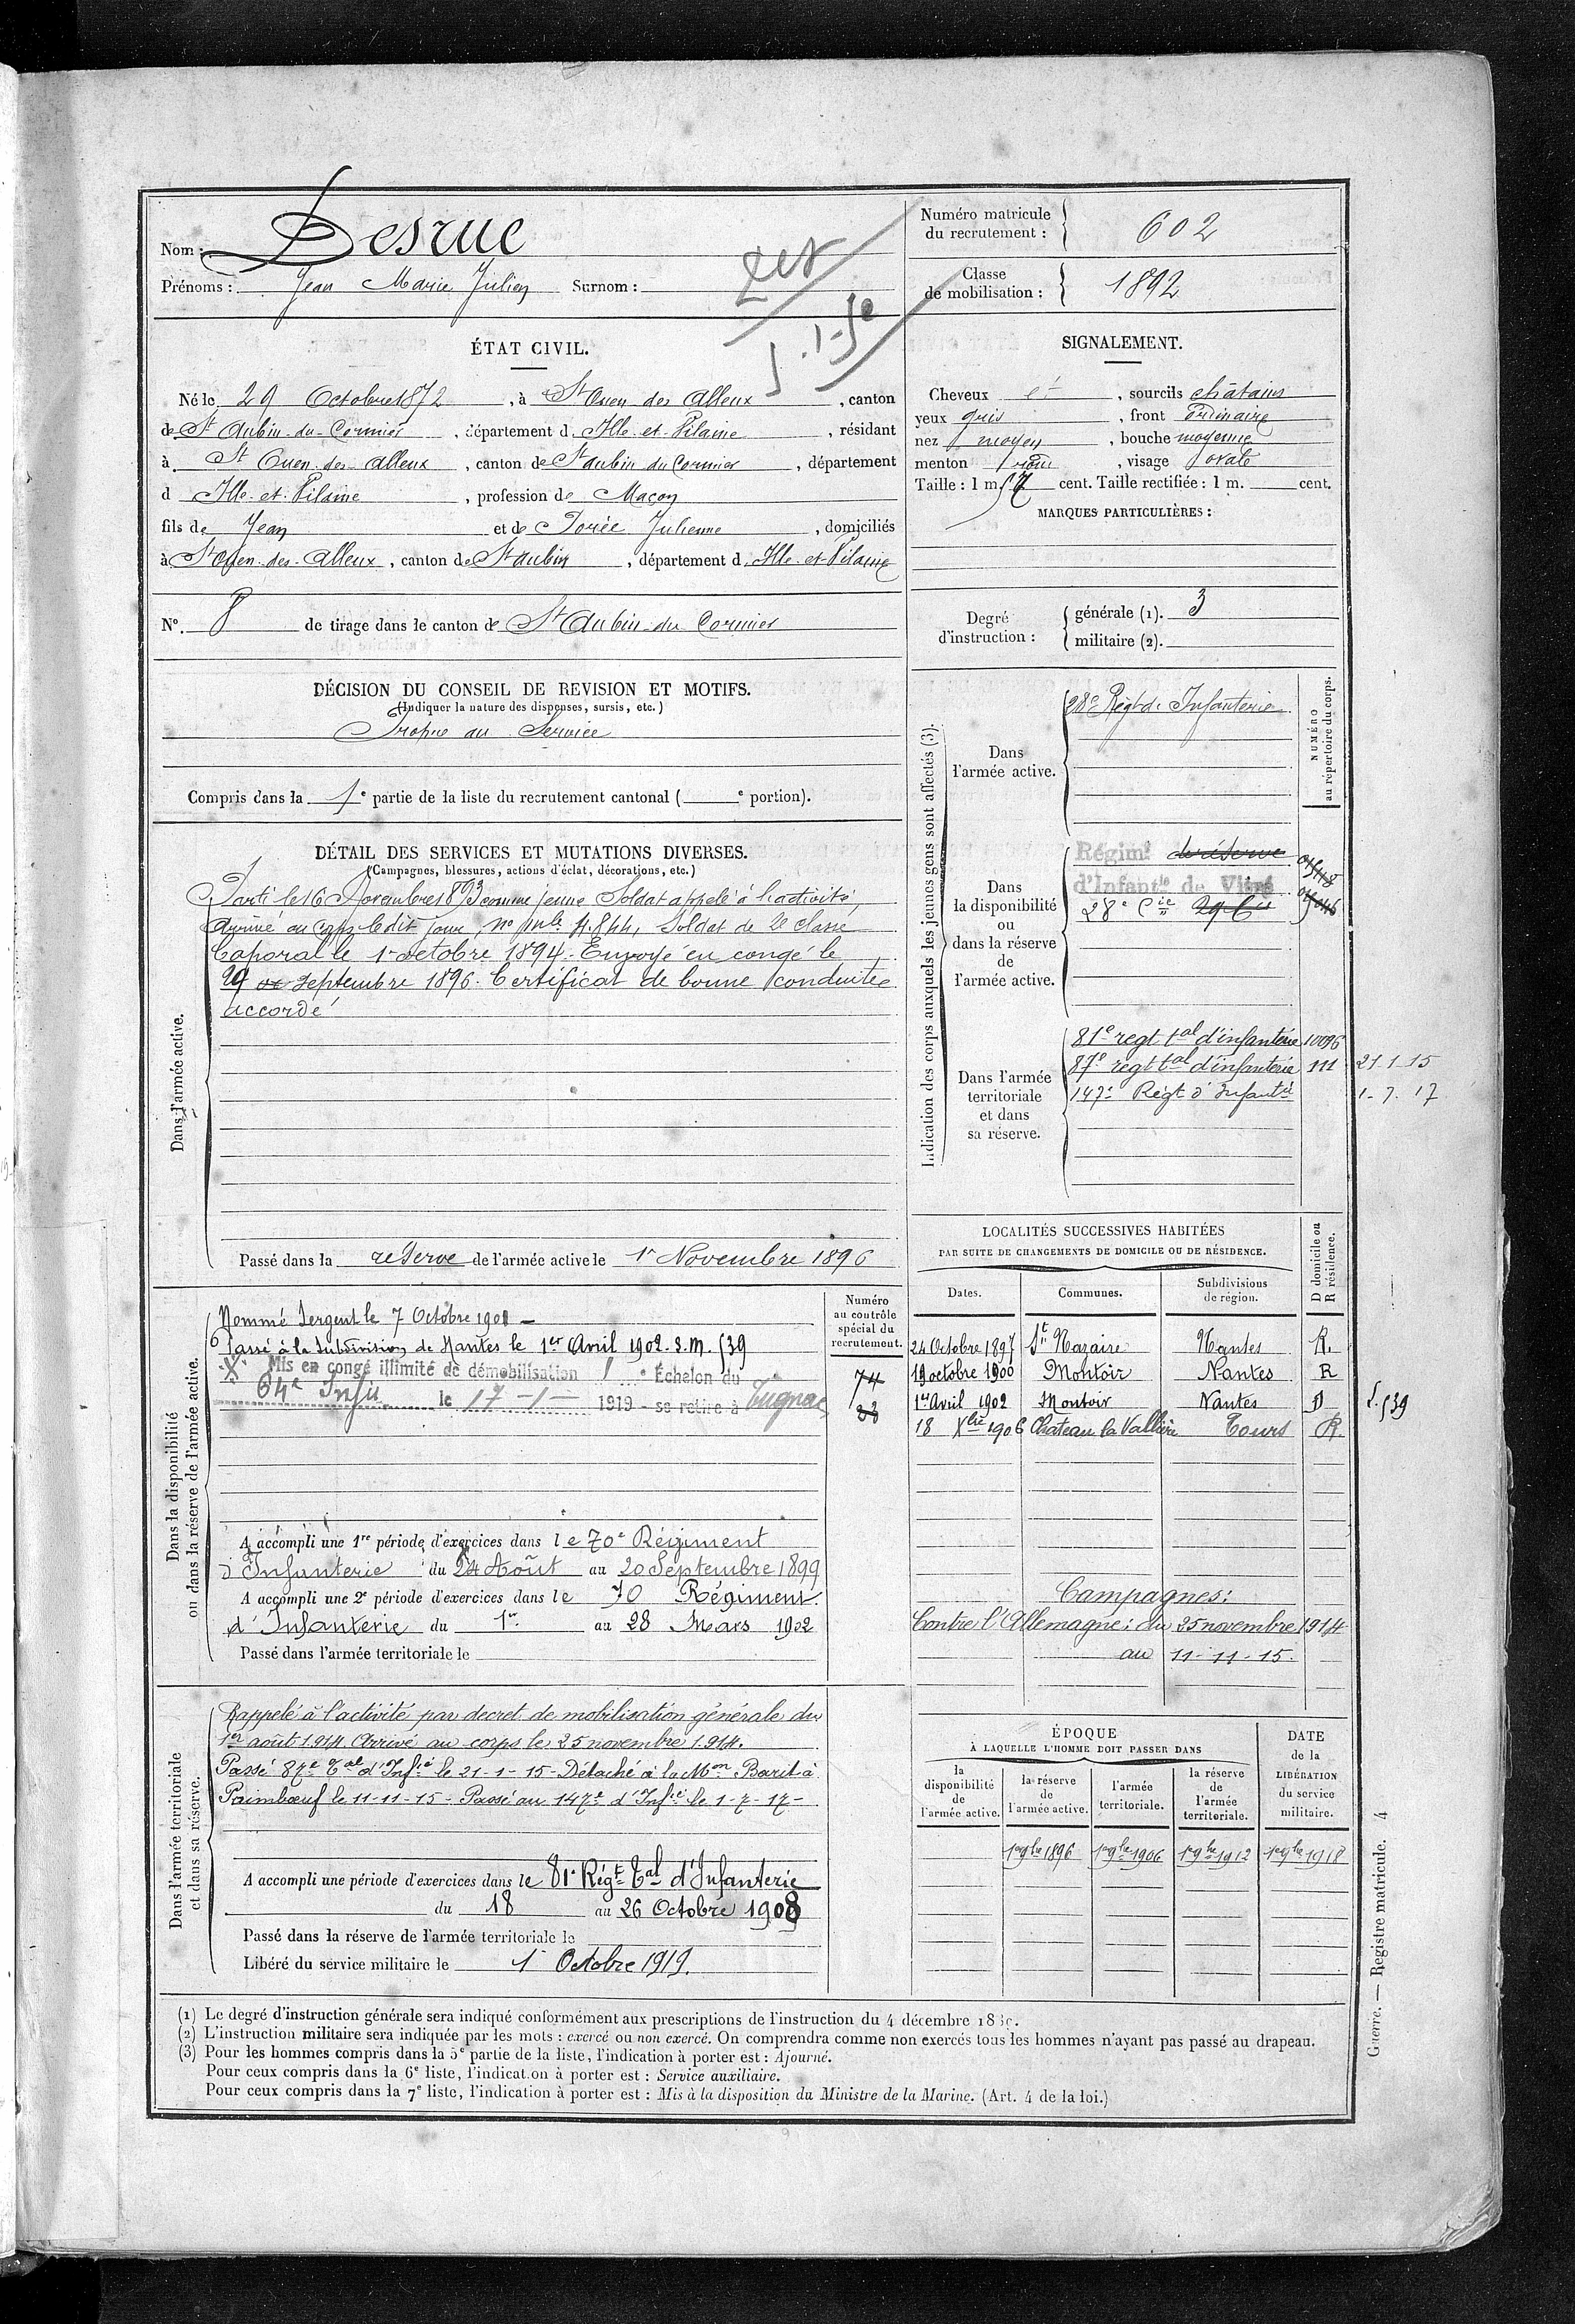 Nom : Desrue
Prénoms : Jean Marie Julien Surnom :
Numéro matricule du recrutement : 602
Classe de mobilisation : 1892
ÉTAT CIVIL.
Né le 29 Octobre 1872, à St Ouen des Alleux, canton
de St Aubin-du-Cormier, département d Ille-et-Vilaine, résidant
à St Ouen-des-Alleux, canton de St Aubin du Cormier, département
d Ille-et-Vilaine, profession de Maçon
fils de Jean et de Dorée Julienne, domiciliés
à St Ouen-des-Alleux, canton de St Aubin, département d Ille-et-Vilaine
No. 8 de tirage dans le canton de St Aubin-du Cormier
DÉCISION DU CONSEIL DE REVISION ET MOTIFS.
(Indiquer la nature des dispenses, sursis, etc.)
Propre au Service
Compris dans la 1e partie de la liste du recrutement cantonal ( e portion).
DÉTAIL DES SERVICES ET MUTATIONS DIVERSES.
(Campagnes, blessures, actions d'éclat, décorations, etc.)
Dans l'armée active.
Parti le 16 Novembre 1893 comme jeune Soldat appelé à l'activité,
Arrivé au corps ledit jour, no mle 4.844, Soldat de 2e classe
Caporal le 1er octobre 1894. Envoyé en congé le
29 septembre 1896. Certificat de bonne conduite
accordé
Passé dans la reserve de l'armée active le 1er Novembre 1896
SIGNALEMENT.
Cheveux et, sourcils châtains
yeux gris, front ordinaire
nez moyen, bouche moyenne
menton rond, visage ovale
Taille : 1 m. 57 cent. Taille rectifiée : 1 m. cent.
MARQUES PARTICULIÈRES :
Degré d'instruction :
générale (1). 3
militaire (2).
Indication des corps auxquels les jeunes gens sont affectés (3).
NUMÉRO au répertoire du corps.
Dans l'armée active.
28e Régt d'Infanterie
Dans la disponibilité ou dans la réserve de l'armée active.
Régimt de réserve
d'Infantie de Vitré
28e Cie
Dans l'armée territoriale et dans sa réserve.
81e regt tal d'infanterie 10096
87e regt tal d'infanterie 111 21-1-15
147e Régt d'Infantie 1-7-17
LOCALITÉS SUCCESSIVES HABITÉES
PAR SUITE DE CHANGEMENTS DE DOMICILE OU DE RÉSIDENCE.
Dates. Communes. Subdivisions de région. D domicile ou R résidence.
24 Octobre 1897 St Nazaire Nantes R.
19 octobre 1900 Montoir Nantes R
1er Avril 1902 Montoir Nantes D
18 Xbre 1906 Chateau la Vallière Tours R.
Campagnes :
Contre l'Allemagne : du 25 novembre 1914
au 11-11-15.
Dans la disponibilité ou dans la réserve de l'armée active.
Numéro au contrôle spécial du recrutement.
Nommé Sergent le 7 Octobre 1901
Passé à la Subdivision de Nantes le 1er Avril 1902. S.M. 539
Mis en congé illimité de démobilisation 1 e Échelon du
64e Infie le 17-1- 1919 - se retire à Trignac
74
A accompli une 1re période d'exercices dans le 70e Régiment
d'Infanterie du 24 Août au 20 Septembre 1899
A accompli une 2e période d'exercices dans le 70 Régiment
d'Infanterie du 1er au 28 Mars 1902
Passé dans l'armée territoriale le
Dans l'armée territoriale et dans sa réserve.
Rappelé à l'activité par decret de mobilisation générale du
1er août 1914 Arrivé au corps le 25 novembre 1914.
Passé 87e Tal d'Infie le 21-1-15 - Détaché à la Mon Barit à
Paimbœuf le 11-11-15 - Passé au 147e d'Infie le 1-7-17-
A accompli une période d'exercices dans le 81e Régt Tal d'Infanterie
du 18 au 26 Octobre 1908
Passé dans la réserve de l'armée territoriale le
Libéré du service militaire le 1er Octobre 1919.
ÉPOQUE À LAQUELLE L'HOMME DOIT PASSER DANS
la disponibilité de l'armée active. la réserve de l'armée active. l'armée territoriale. la réserve de l'armée territoriale.
DATE de la LIBÉRATION du service militaire.
1er 9bre 1896 1er 9bre 1906 1er 9bre 1912 1er 9bre 1918
(1) Le degré d'instruction générale sera indiqué conformément aux prescriptions de l'instruction du 4 décembre
(2) L'instruction militaire sera indiquée par les mots : exercé ou non exercé. On comprendra comme non exercés tous les hommes n'ayant pas passé au drapeau.
(3) Pour les hommes compris dans la 5e partie de la liste, l'indication à porter est : Ajourné.
Pour ceux compris dans la 6e liste, l'indication à porter est : Service auxiliaire.
Pour ceux compris dans la 7e liste, l'indication à porter est : Mis à la disposition du Ministre de la Marine. (Art. 4 de la loi.)
Guerre. — Registre matricule. 4